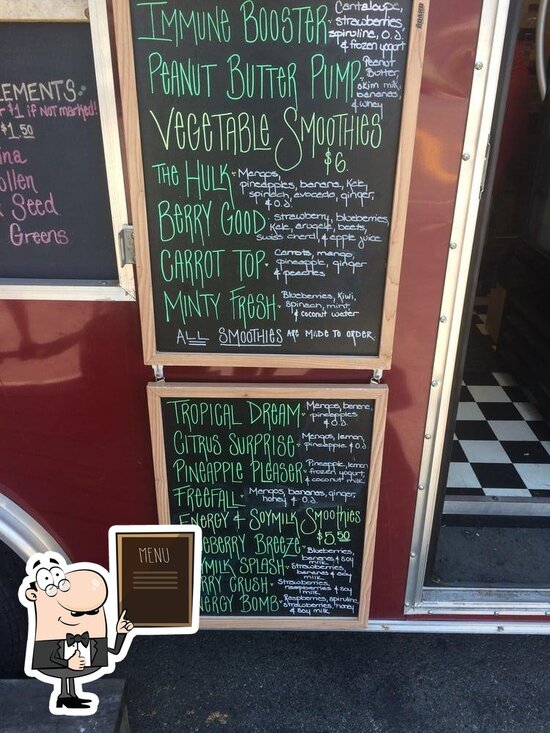 EMENTS
$1 if NOT marked!
$1.50
ina
ollen
Seed
Greens
IMMUNE BOOSTER - Cantaloupe,
strawberries,
spirulina, O.J.
& frozen yogurt
PEANUT BUTTER PUMP - Peanut
Butter,
skim milk,
bananas,
& whey
VEGETABLE SMOOTHIES
$6.
THE HULK - Mangos,
pineapples, banana, Kale,
spinach, avocado, ginger,
& O.J.
BERRY GOOD - strawberry, blueberries,
Kale, arugula, beets,
swiss chard, & apple juice
CARROT TOP - Carrots, mango,
pineapple, ginger
& peaches
MINTY FRESH - Blueberries, Kiwi,
spinach, mint,
& coconut water
ALL SMOOTHIES ARE MADE TO ORDER
TROPICAL DREAM - Mangos, banana,
pineapples
& O.J.
CITRUS SURPRISE - Mangos, lemon,
pineapple & O.J.
PINEAPPLE PLEASER - Pineapple, lemon
frozen yogurt,
& coconut milk
FREEFALL - Mangos, bananas, ginger,
honey & O.J.
ENERGY & SOYMILK SMOOTHIES
$5.50
UEBERRY BREEZE - Blueberries,
bananas & soy
milk
YMILK SPLASH - Strawberries,
bananas & soy
milk
RRY CRUSH - Strawberries,
raspberries & soy
milk
NERGY BOMB - Raspberries, spirulina
strawberries, honey
& soy milk
MENU